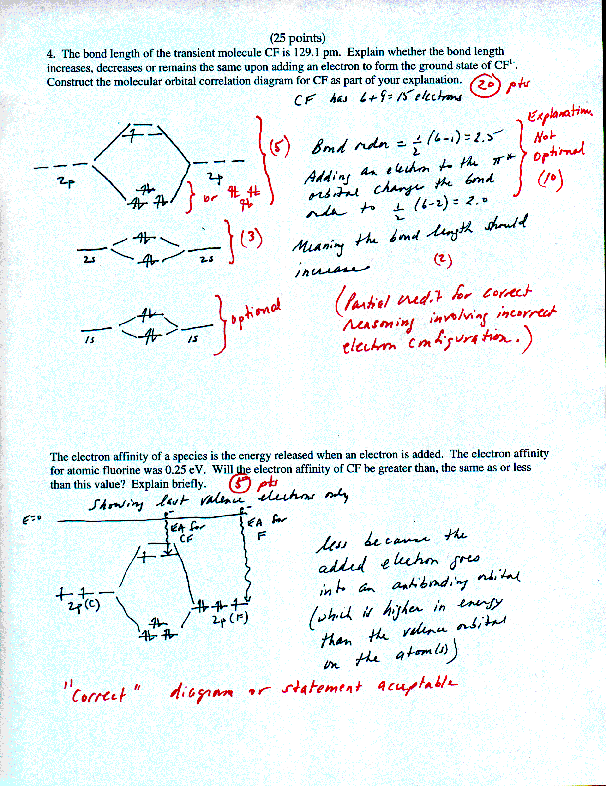 (25 points)
4. The bond length of the transient molecule CF is 129.1 pm. Explain whether the bond length
increases, decreases or remains the same upon adding an electron to form the ground state of CF¹⁻.
Construct the molecular orbital correlation diagram for CF as part of your explanation. (20) pts
CF has 6+9=15 electrons
Explanation
Not
optional
(10)
Bond order = 1/2 (6-1) = 2.5
Adding an electron to the π*
orbital change the bond
order to 1/2 (6-2) = 2.0
Meaning the bond length should
increase
(2)
(Partial credit for correct
reasoning involving incorrect
electron configuration.)
2p 2p
or
(5)
2s 2s
(3)
1s 1s
optional
The electron affinity of a species is the energy released when an electron is added. The electron affinity
for atomic fluorine was 0.25 eV. Will the electron affinity of CF be greater than, the same as or less
than this value? Explain briefly. (5) pts
Showing last valence electrons only
E=0
e⁻ e⁻
EA for
CF
EA for
F
2p(C)
2p(F)
less because the
added electron goes
into an antibonding orbital
(which is higher in energy
than the valence orbital
on the atom(s))
"Correct" diagram or statement acceptable